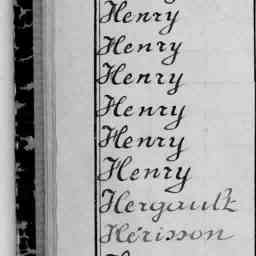 Henry
Henry
Henry
Henry
Henry
Henry
Hergault
Hérisson